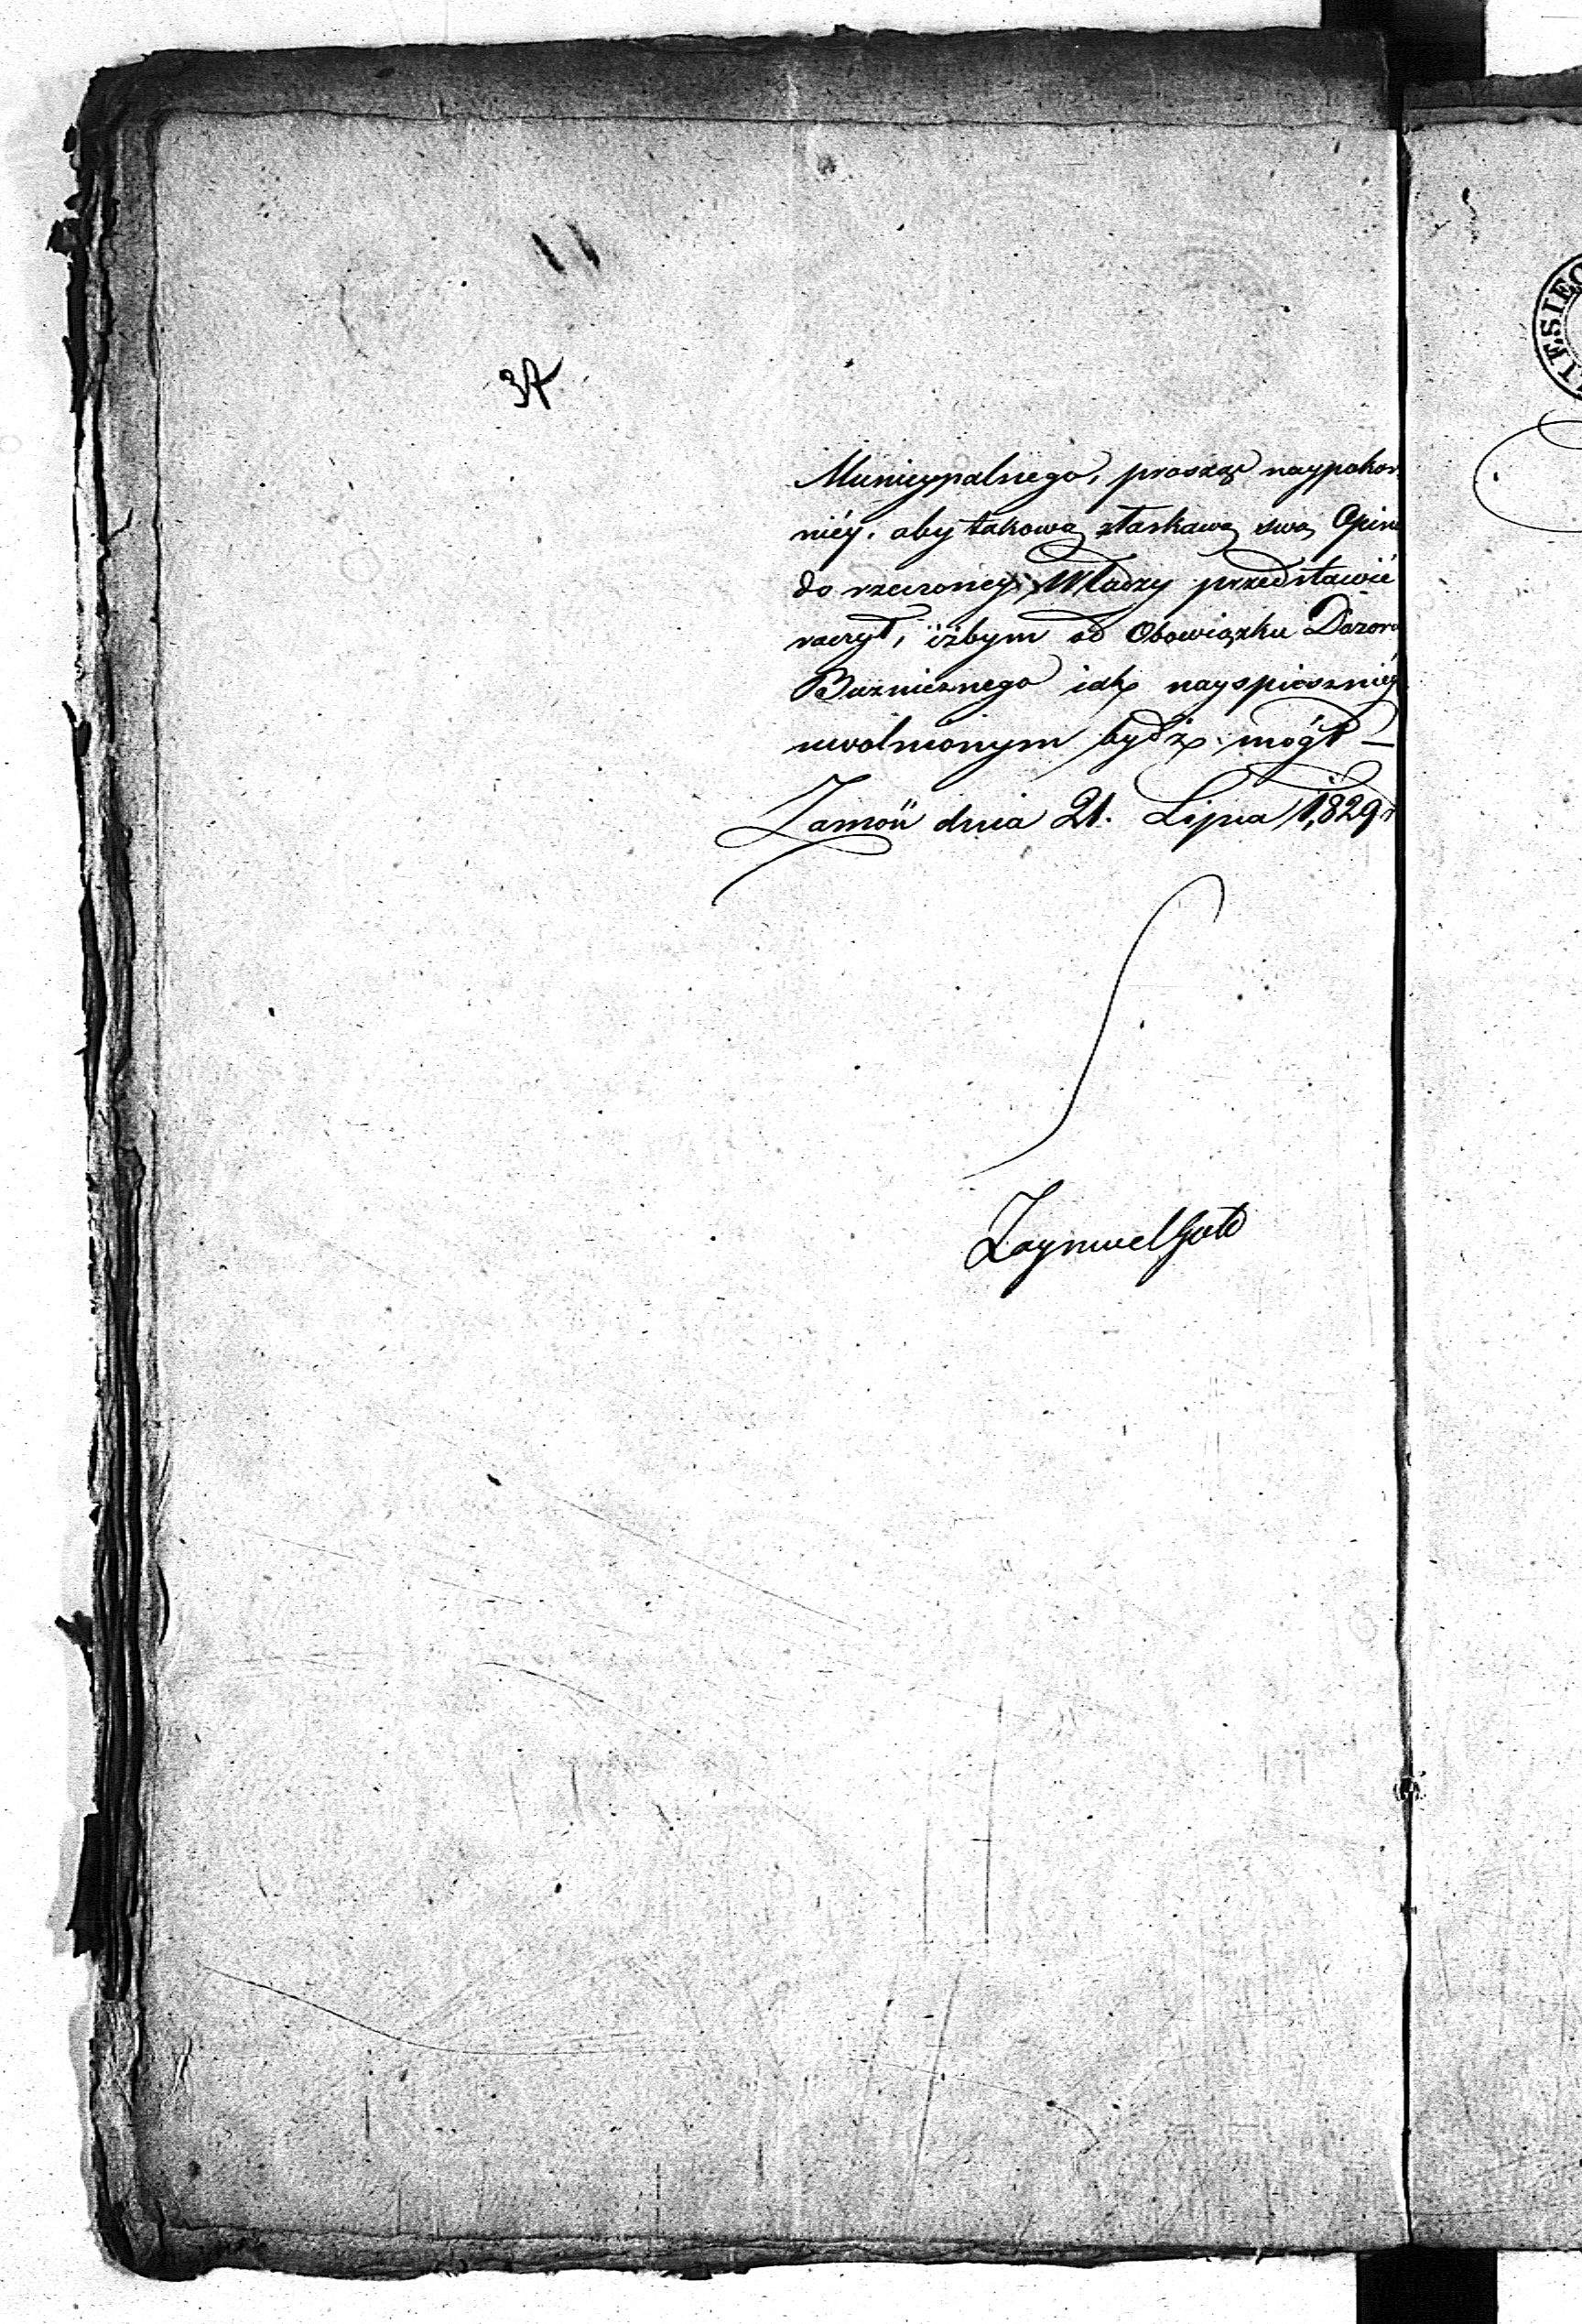 37
Municypalnego, proszę naypokor
niéy, aby takową złaskawą swą Opin
do rzeczoney Władzy przedstawić
raczył, iżbym od Obowiązku Dozoru
Buznicznego iak nayspieszniéy
uwolnionym bydź mógł —
Zamość dnia 21. Lipca 1,829 r
Zaynwel Gold